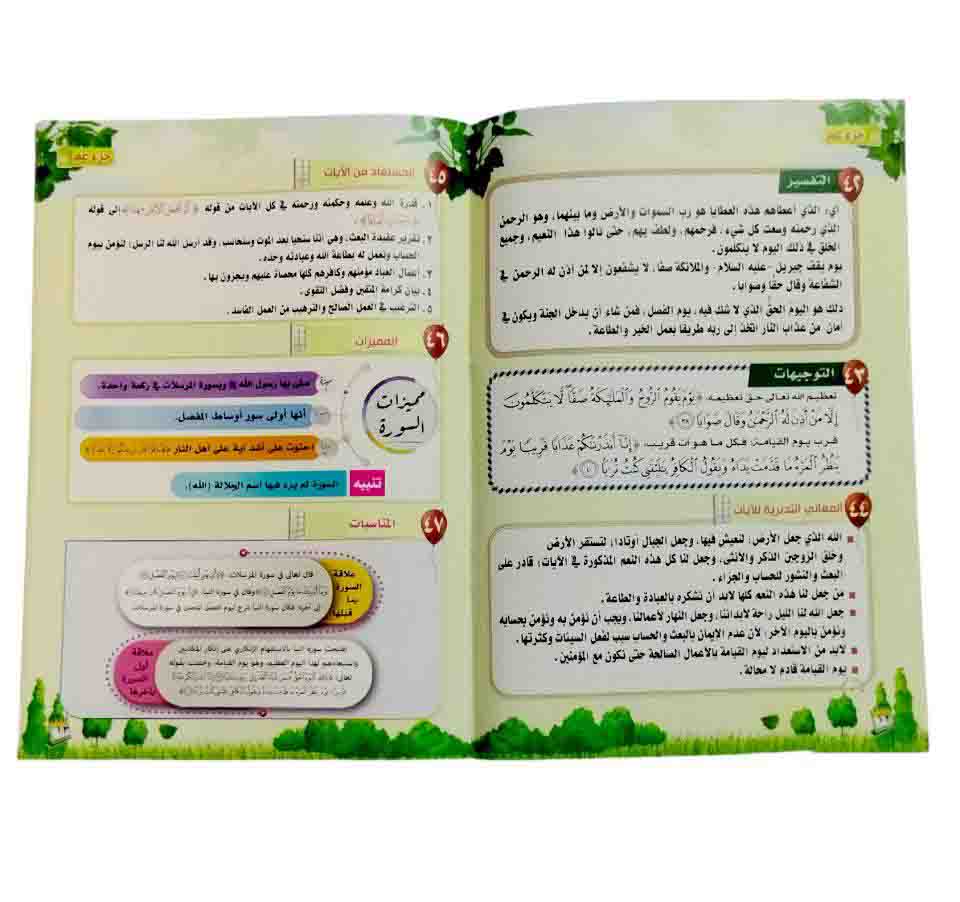 جزء عم
٤٢
التفسير
أي: الذي أعطاهم هذه العطايا هو رب السموات والأرض وما بينهما، وهو الرحمن
الذي رحمته وسعت كل شيء، فرحمهم، ولطف بهم، حتى نالوا هذا النعيم، وجميع
الخلق في ذلك اليوم لا يتكلمون.
يوم يقف جبريل -عليه السلام- والملائكة صفًا، لا يشفعون إلا لمن أذن له الرحمن في
الشفاعة وقال حقًا وصوابًا.
ذلك هو اليوم الحق الذي لا شك فيه، يوم الفصل، فمن شاء أن يدخل الجنة ويكون في
أمان من عذاب النار اتخذ إلى ربه طريقًا بعمل الخير والطاعة.
٤٣
التوجيهات
تعظيم الله تعالى حق تعظيمه: ﴿يَوْمَ يَقُومُ الرُّوحُ وَالْمَلَائِكَةُ صَفًّا لَّا يَتَكَلَّمُونَ
إِلَّا مَنْ أَذِنَ لَهُ الرَّحْمَٰنُ وَقَالَ صَوَابًا ٣٨﴾
قرب يوم القيامة؛ فكل ما هو آت قريب: ﴿إِنَّا أَنذَرْنَاكُمْ عَذَابًا قَرِيبًا يَوْمَ
يَنظُرُ الْمَرْءُ مَا قَدَّمَتْ يَدَاهُ وَيَقُولُ الْكَافِرُ يَا لَيْتَنِي كُنتُ تُرَابًا ٤٠﴾
٤٤
المعاني التدبرية للآيات
الله الذي جعل الأرض؛ لنعيش فيها، وجعل الجبال أوتادًا؛ لتستقر الأرض
وخلق الزوجين الذكر والأنثى، وجعل لنا كل هذه النعم المذكورة في الآيات؛ قادر على
البعث والنشور للحساب والجزاء.
من جعل لنا هذه النعم كلها لابد أن نشكره بالعبادة والطاعة.
جعل الله لنا الليل راحة لأبداننا، وجعل النهار لأعمالنا، ويجب أن نؤمن به ونؤمن بحسابه
ونؤمن باليوم الآخر؛ لأن عدم الإيمان بالبعث والحساب سبب لفعل السيئات وكثرتها.
لابد من الاستعداد ليوم القيامة بالأعمال الصالحة حتى نكون مع المؤمنين.
يوم القيامة قادم لا محالة.
جزء عم
٤٥
المستفاد من الآيات
١. قدرة الله وعلمه وحكمته ورحمته في كل الآيات من قوله إلى قوله
٢. تقرير عقيدة البعث، وهي أننا سنحيا بعد الموت وسنحاسب، وقد أرسل الله لنا الرسل؛ لنؤمن بيوم
الحساب ونعمل له بطاعة الله وعبادته وحده.
٣. أعمال العباد مؤمنهم وكافرهم كلها محصاة عليهم ويجزون بها.
٤. بيان كرامة المتقين وفضل التقوى.
٥. الترغيب في العمل الصالح والترهيب من العمل الفاسد.
٤٦
المميزات
مميزات
السورة
صلى بها رسول الله ﷺ وبسورة المرسلات في ركعة واحدة.
أنها أولى سور أوساط المفصل.
احتوت على أشد آية على أهل النار
تنبيه
السورة لم يرد فيها اسم الجلالة (الله).
٤٧
المناسبات
علاقة
السورة
بما
قبلها
قال تعالى في سورة المرسلات:
علاقة
أول
السورة
بآخرها